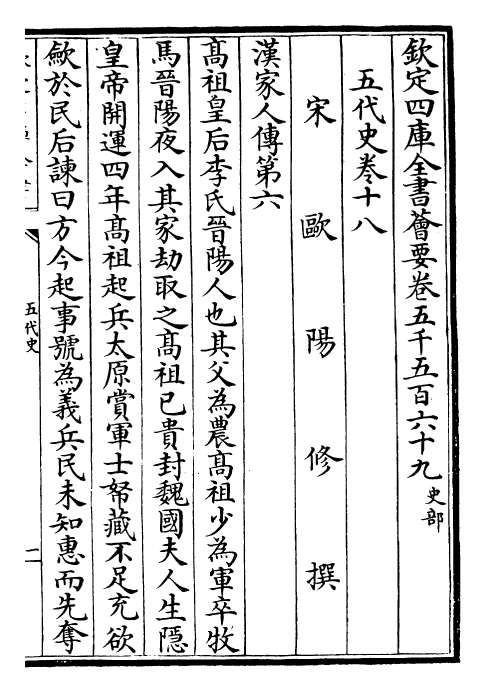 欽定四庫全書薈要卷五千五百六十九 史部
五代史卷十八
宋 歐陽修 撰
漢家人傳第六
髙祖皇后李氏晉陽人也其父為農髙祖少為軍卒牧
馬晉陽夜入其家劫取之髙祖已貴封魏國夫人生隱
皇帝開運四年髙祖起兵太原賞軍士帑藏不足充欲
斂於民后諫曰方今起事號為義兵民未知惠而先奪
五代史
一